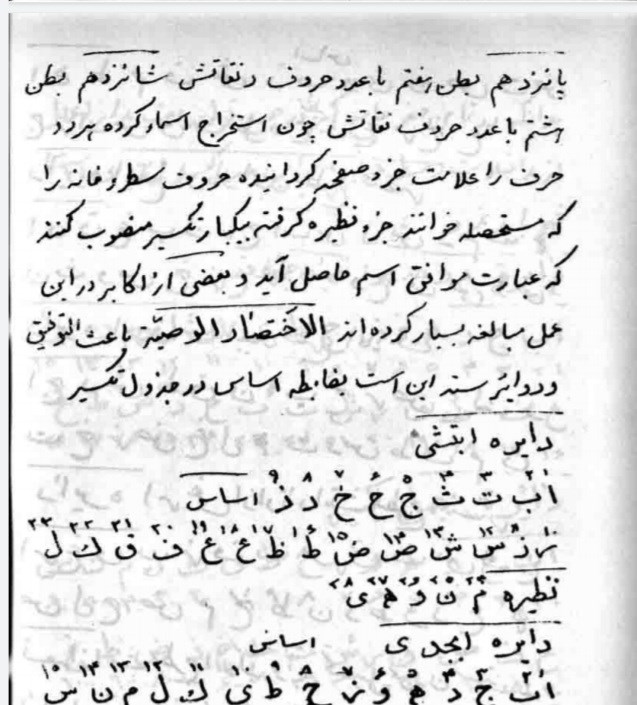 پانزدهم بطن هفتم با عدد حروف و نقاتش شانزدهم بطن
هشتم با عدد حروف نقاتش چون استخراج اسماء کرده هر دو
حرف را علامت جزو صفحه گردانیده حروف سطر و خانه را
که مستحصله خوانند جزو نظیره گرفته بیکبار تکسیر منصوب کنند
که عبارت موافق اسم حاصل آید و بعضی از اکابر در این
عمل مبالغه بسیار کرده‌اند الاختصار الوصیّة باعث التوفیق
و دوایر سند این است بضابطه اساس در جدول تکسیر
دایره ابتثی
۱ ۲ ۳ ۴ ۵ ۶ ۷ ۸ ۹
ا ب ت ث ج ح خ د ذ اساس
۱۲ ۱۳ ۱۴ ۱۵ ۱۶ ۱۷ ۱۸ ۱۹ ۲۰ ۲۱ ۲۲ ۲۳
ر ز س ش ص ض ط ظ ع غ ف ق ک ل
۲۴ ۲۵ ۲۶ ۲۷ ۲۸
نظیره م ن و ه ی
دایره ابجدی اساس
۱ ۲ ۳ ۴ ۵ ۶ ۷ ۸ ۹ ۱۰ ۱۱ ۱۲ ۱۳ ۱۴ ۱۵
ا ب ج د ه و ز ح ط ی ک ل م ن س